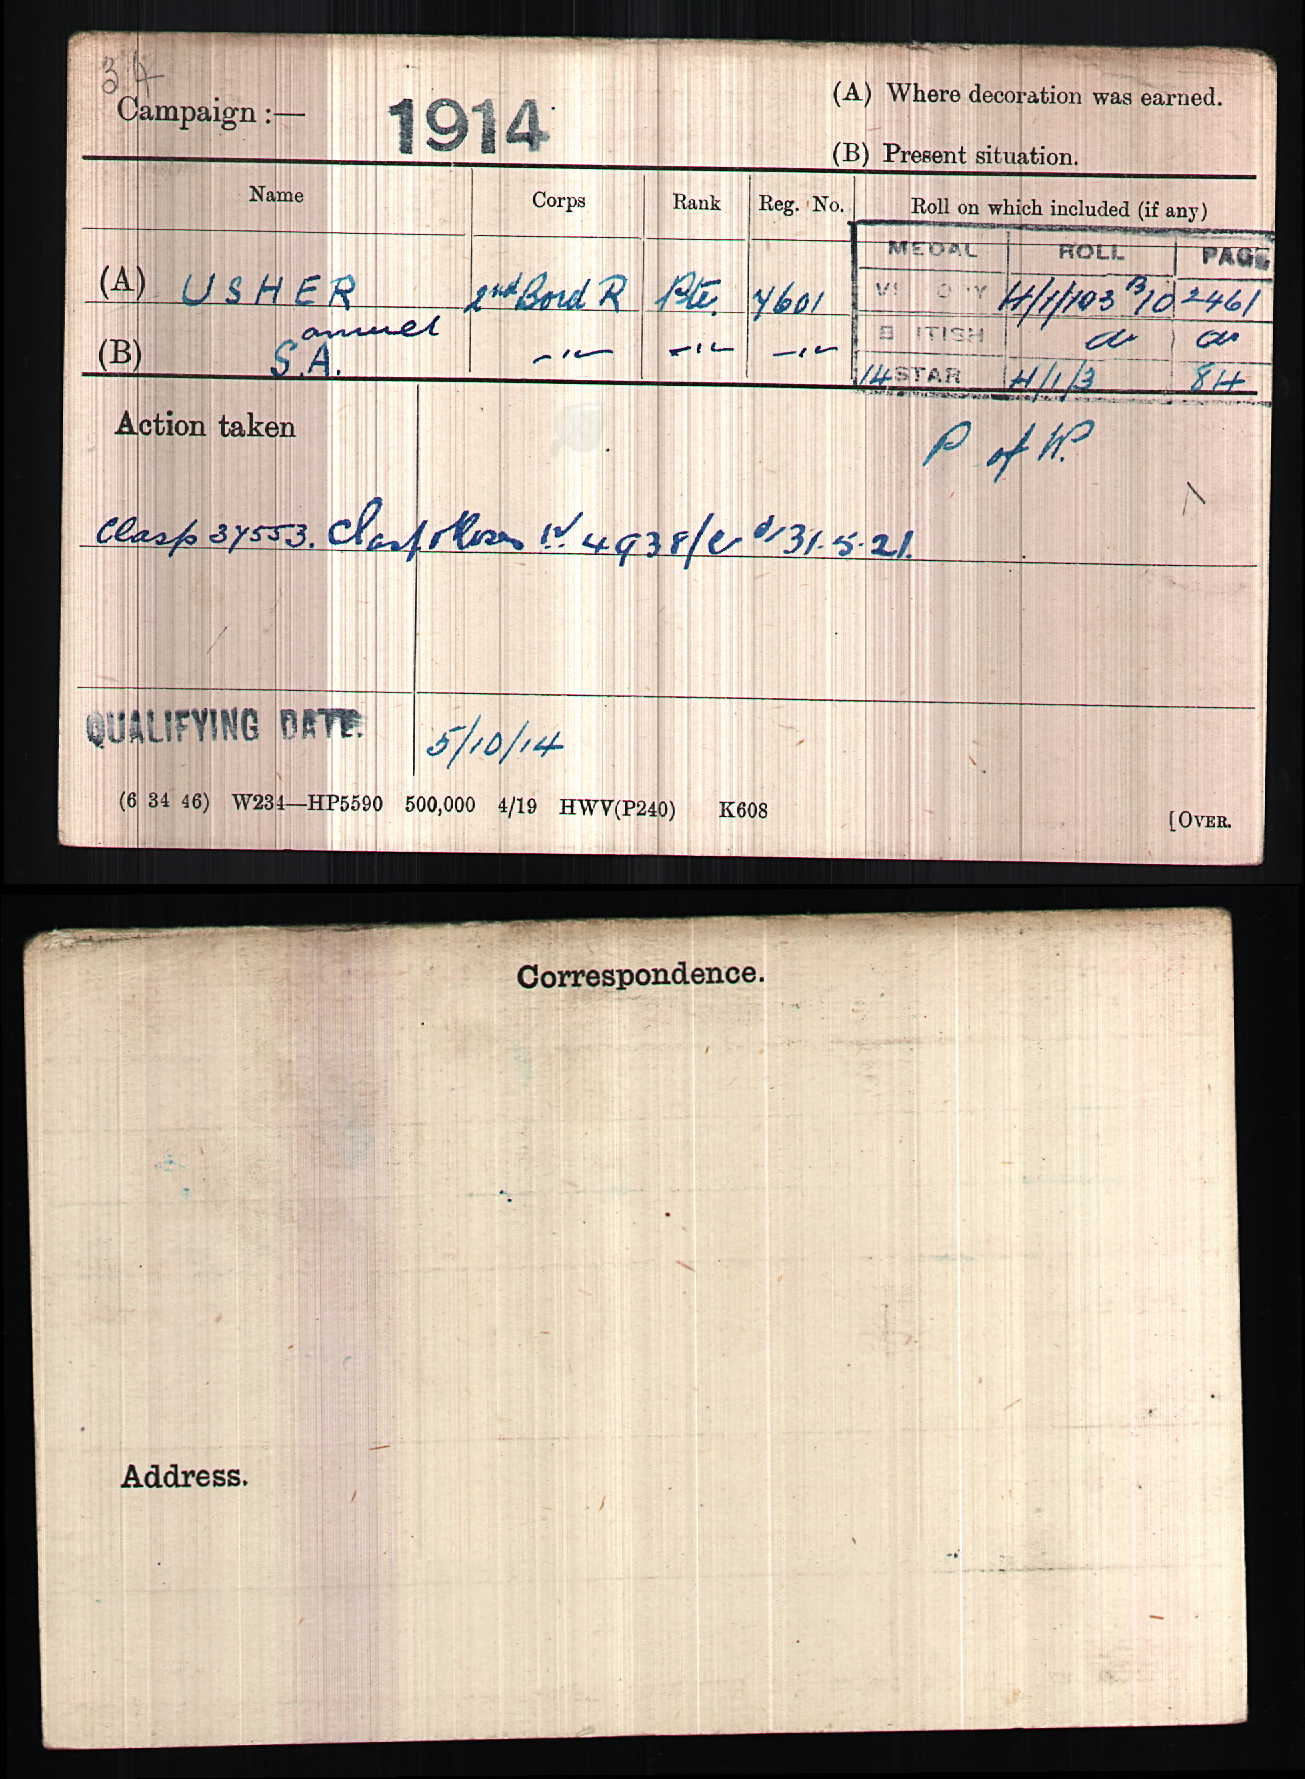 34
Campaign :—
1914
(A) Where decoration was earned.
(B) Present situation.
Name Corps Rank Reg. No. Roll on which included (if any)
MEDAL ROLL PAGE
(A) USHER 2nd Bord R Pte. 7601 H/1/103 B10 2461
amuel
(B) S.A. -"- -"- -"- BRITISH do do
14 STAR H/1/3 84
Action taken
P of W.
Clasp 37553. Clasp & Roses 4938/E d/ 31.5.21.
QUALIFYING DATE. 5/10/14
(6 34 46) W234—HP5590 500,000 4/19 HWV(P240) K608
[OVER.
Correspondence.
Address.